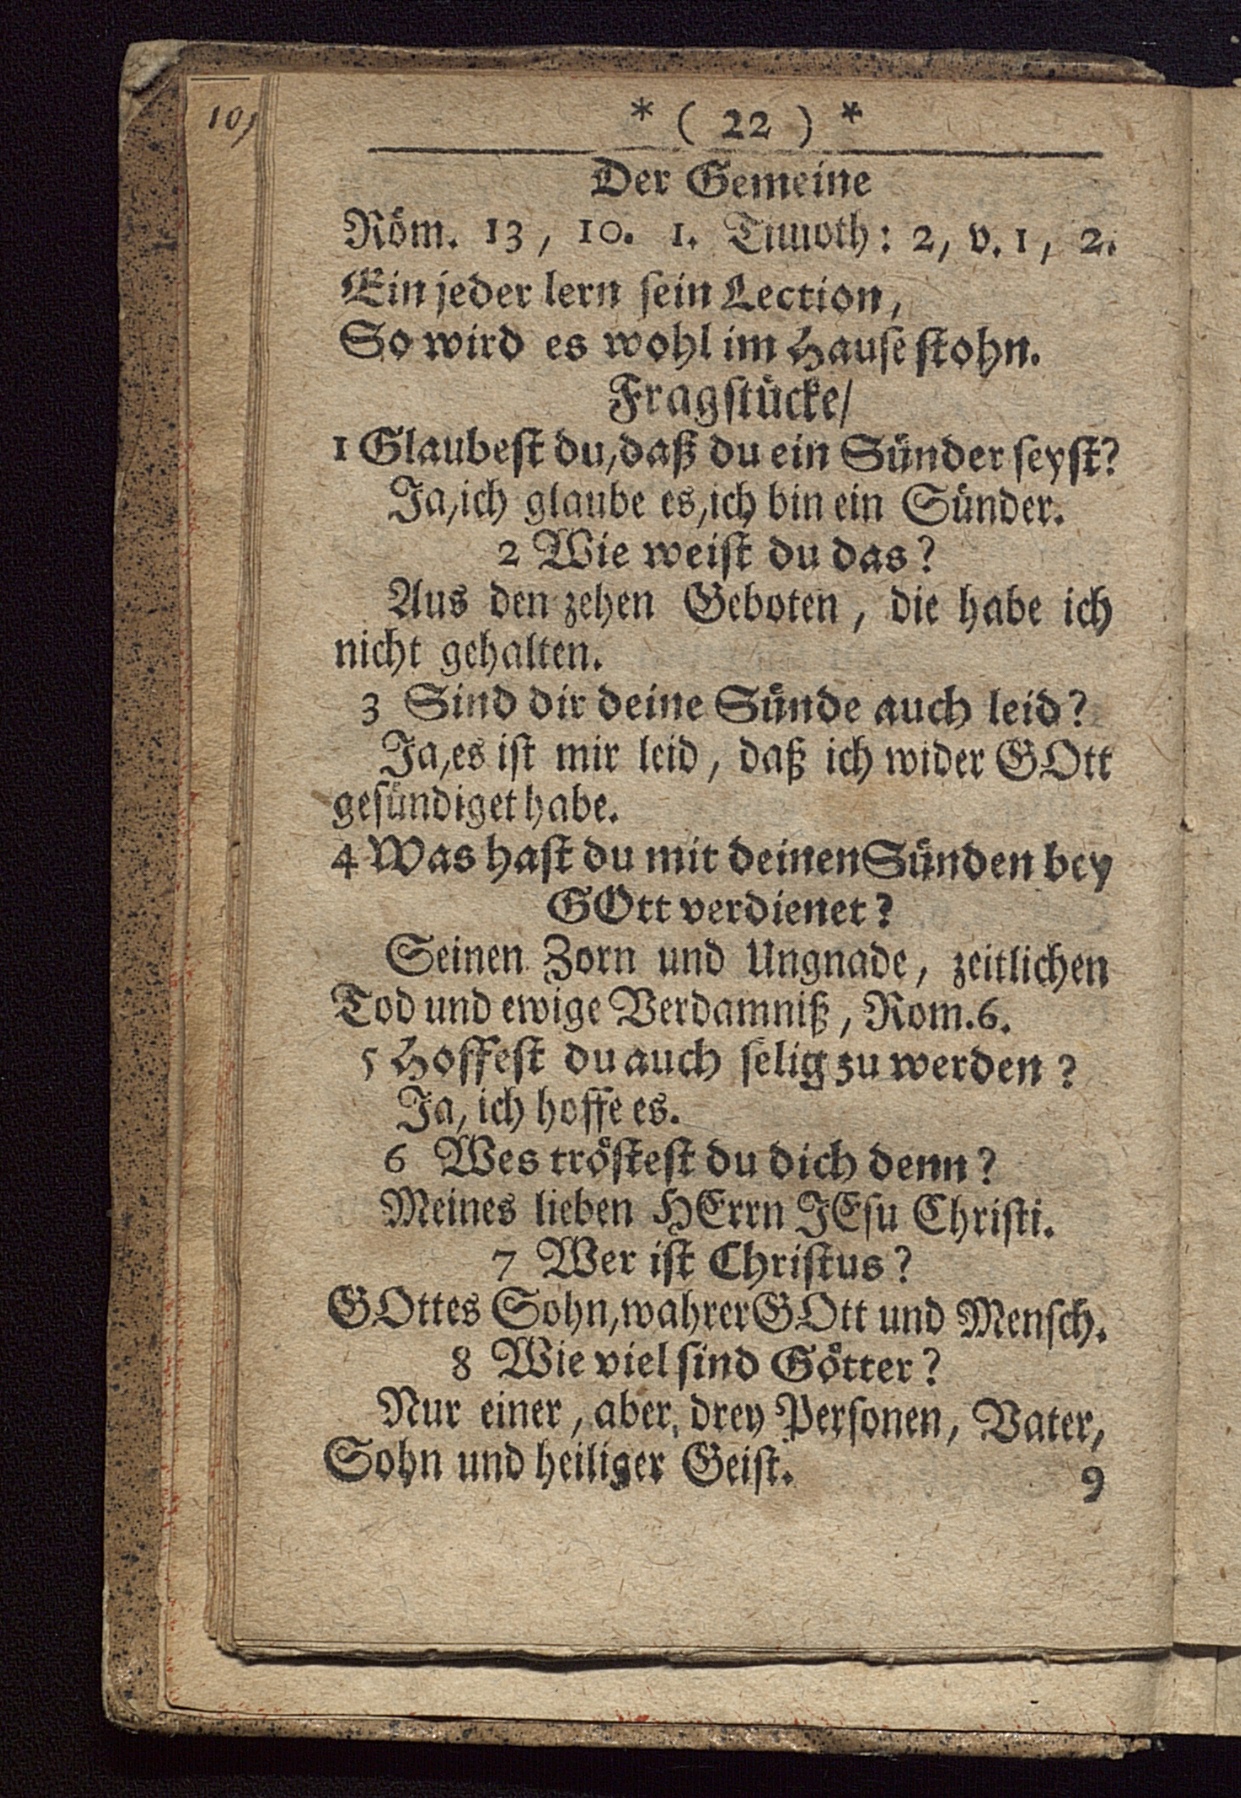 * ( 22 ) *
Der Gemeine
Röm. 13, 10. 1. Timoth: 2, v. 1, 2.
Ein jeder lern sein Lection,
So wird es wohl im Hause stohn.
Fragstücke/
1 Glaubest du, daß du ein Sünder seyst?
Ja, ich glaube es, ich bin ein Sünder.
2 Wie weist du das?
Aus den zehen Geboten, die habe ich
nicht gehalten.
3 Sind dir deine Sünde auch leid?
Ja, es ist mir leid, daß ich wider GOtt
gesündiget habe.
4 Was hast du mit deinen Sünden bey
GOtt verdienet?
Seinen Zorn und Ungnade, zeitlichen
Tod und ewige Verdamniß, Rom. 6.
5 Hoffest du auch selig zu werden?
Ja, ich hoffe es.
6 Wes tröstest du dich denn?
Meines lieben HErrn JEsu Christi.
7 Wer ist Christus?
GOttes Sohn, wahrer GOtt und Mensch.
8 Wie viel sind Götter?
Nur einer, aber drey Personen, Vater,
Sohn und heiliger Geist.
9